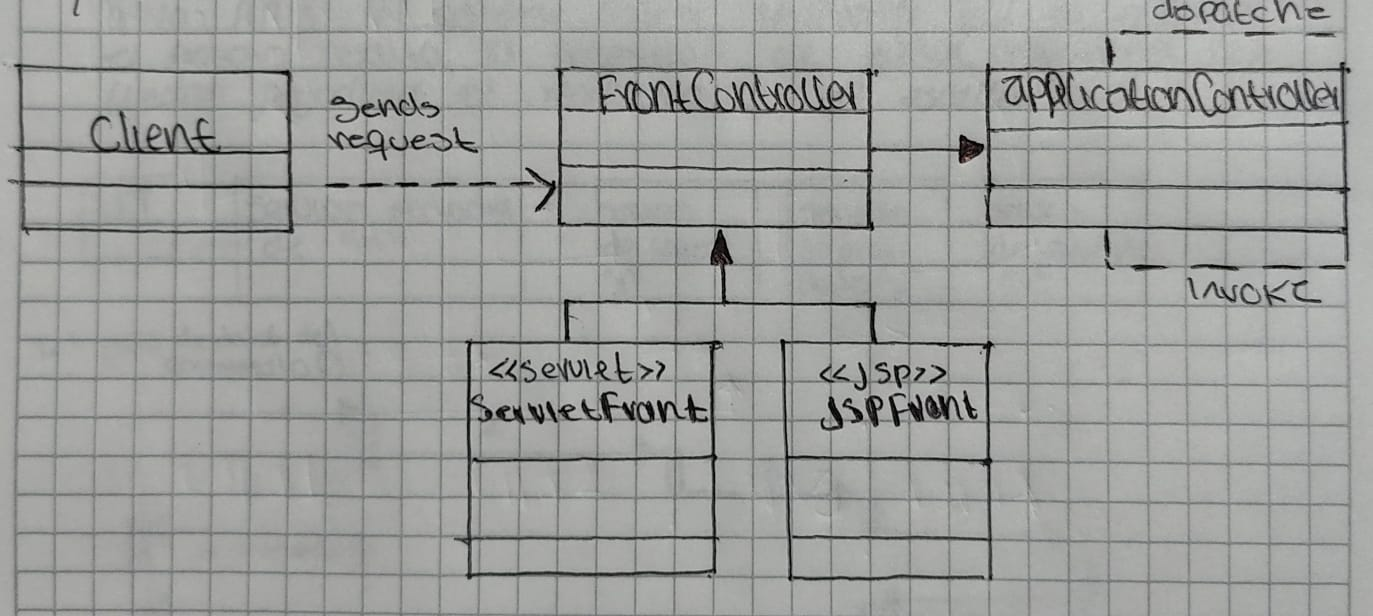 dopatche
Client
sends
request
FrontController
applicationController
invoke
<<servlet>>
ServletFront
<<JSP>>
JSPFront